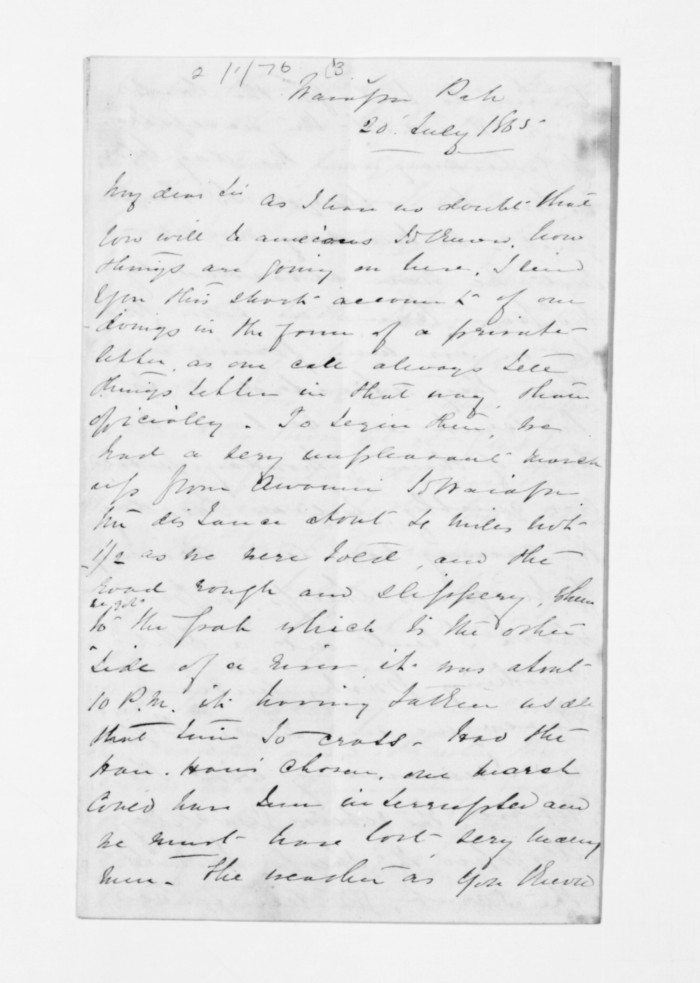 2/1/76 (3
Waiapu Pah
20 July 1865
My dear Sir as I have no doubt that
you will be anxious to know how
things are going on here, I send
you this short account of our
doings in the form of a private
letter, as one can always tell
things better in that way than
officially. To begin then, we
had a very unpleasant march
up from Awanui to Waiapu
the distance about 4 miles not
1½ as we were told, and the
road rough and slippery, when
to the pah which is the other
side of a river it was about
10 P.M. it having taken us all
that time to cross. Had the
Hau Haus chosen, our march
could have been interrupted and
we must have lost very many
men. The weather as you know